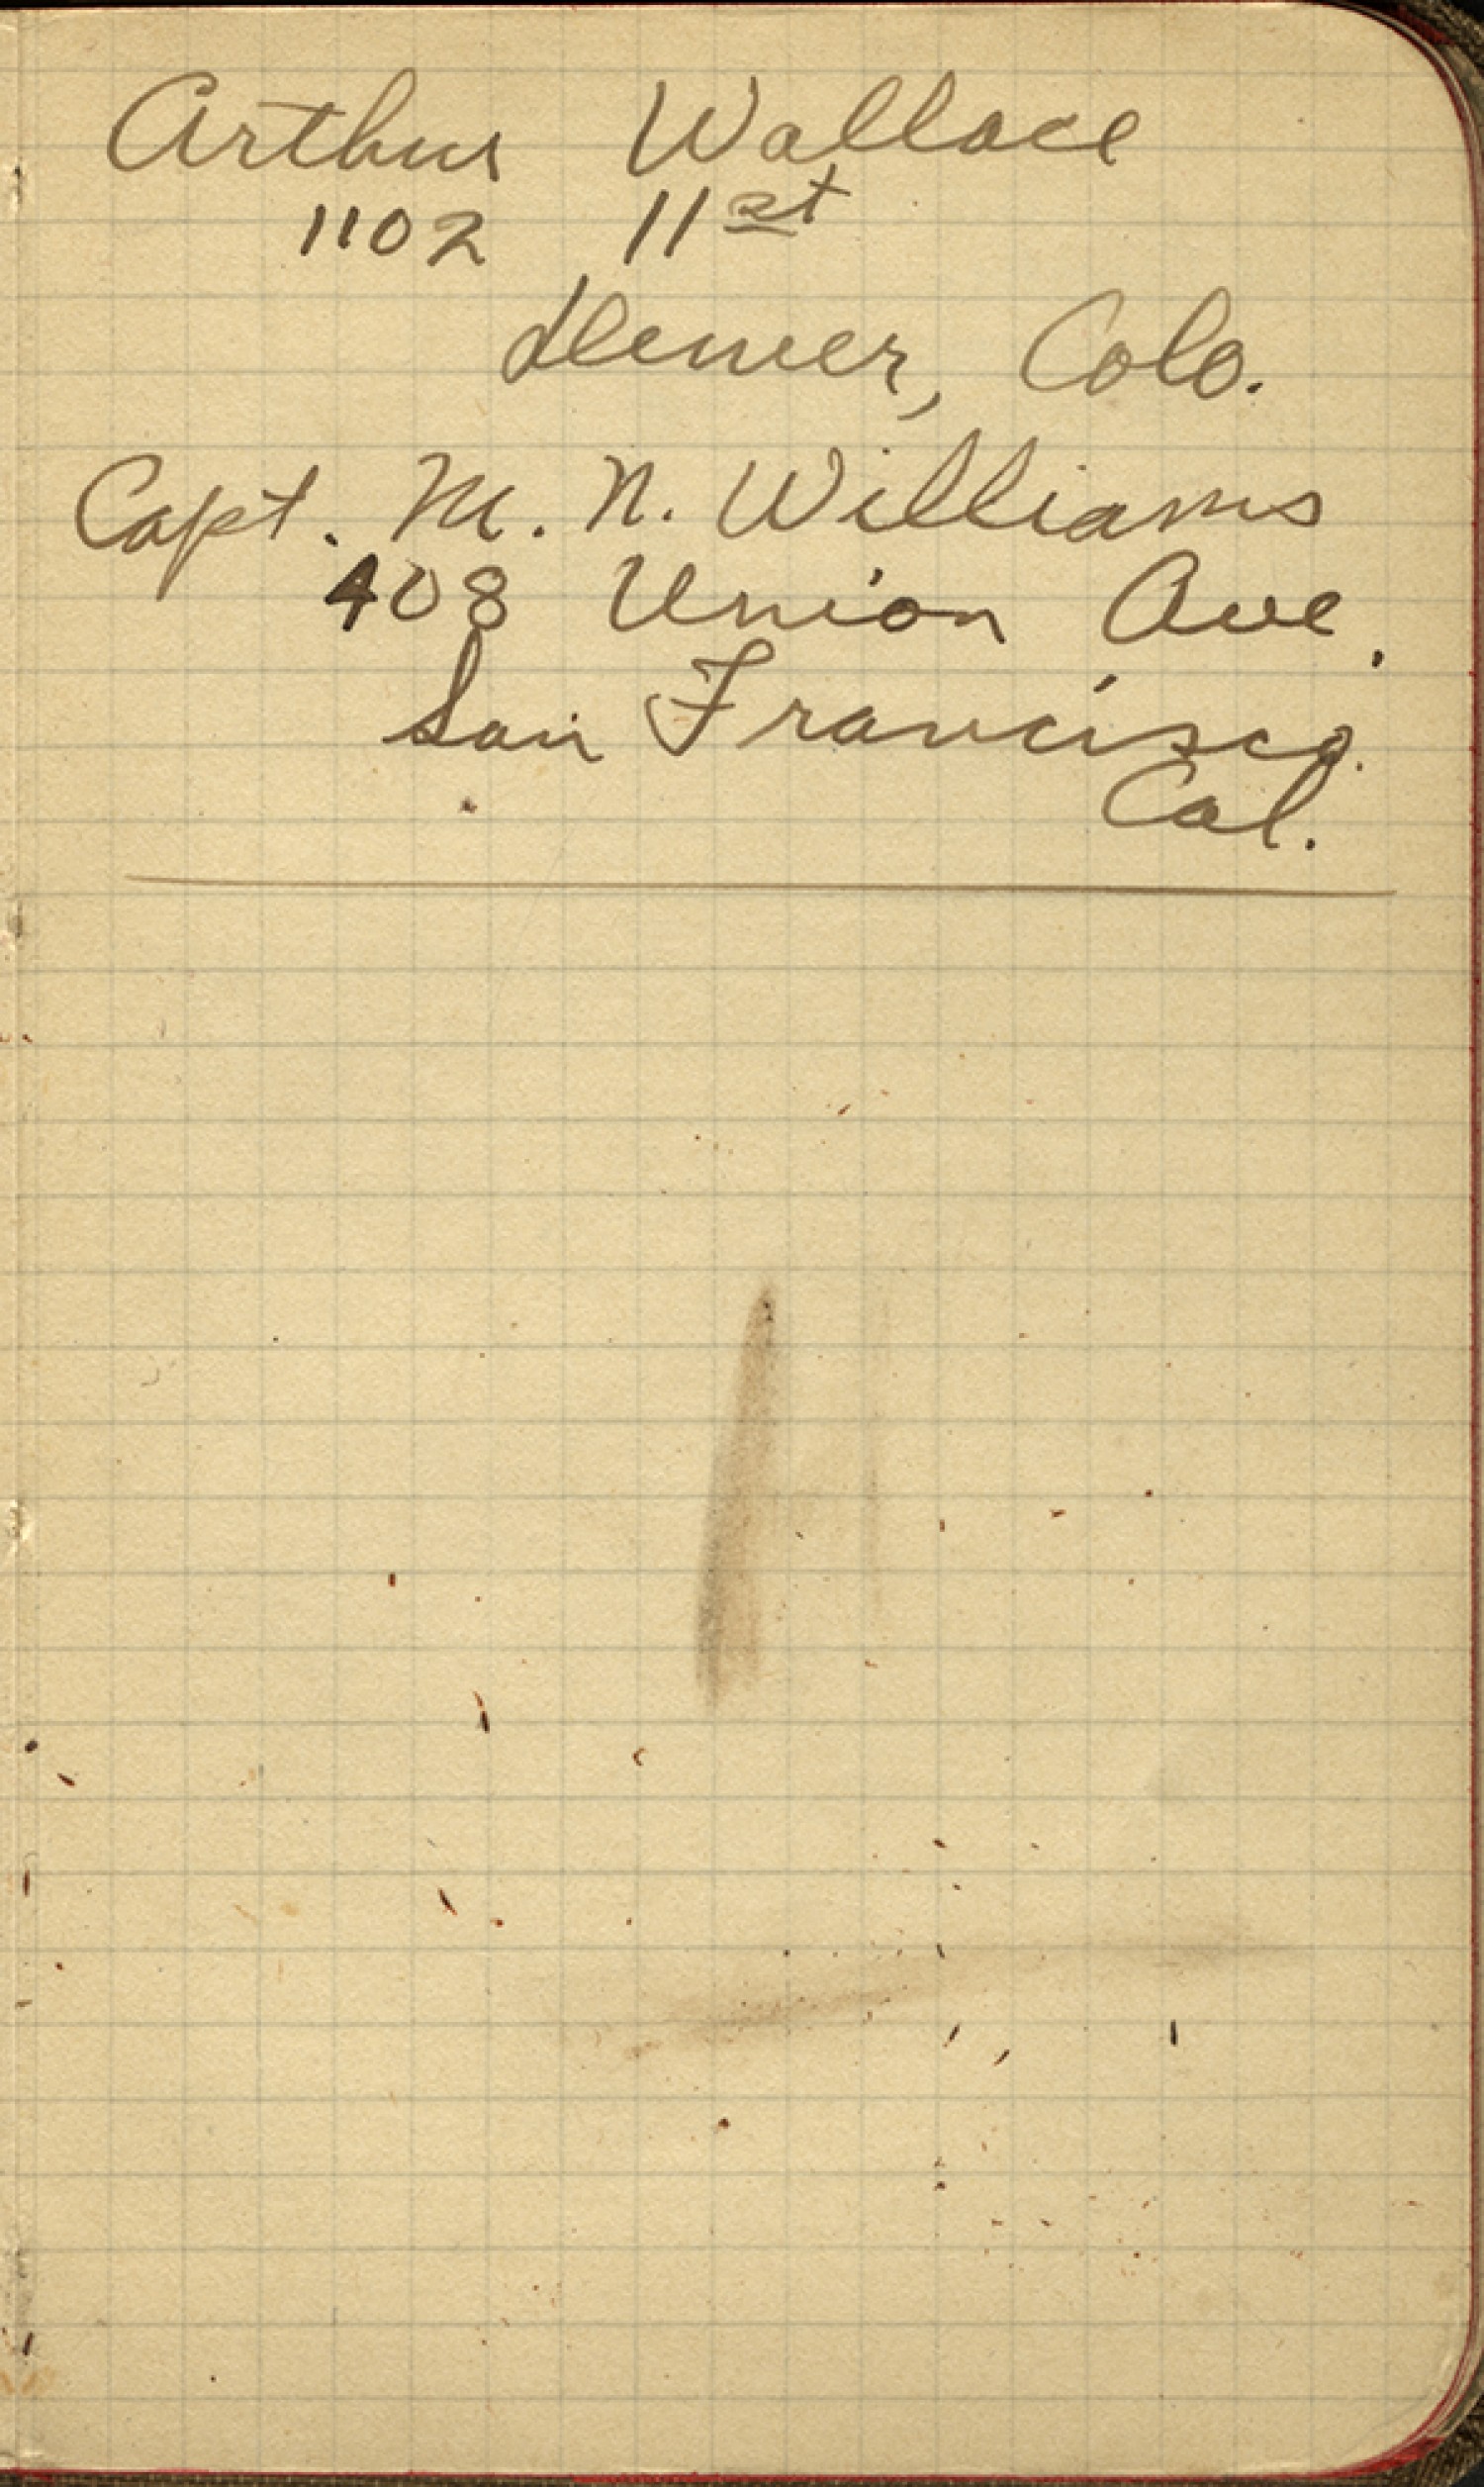 Arthur Wallace
1102 11st
Denver, Colo.
Capt. M. N. Williams
408 Union Ave.
San Francisco.
Cal.